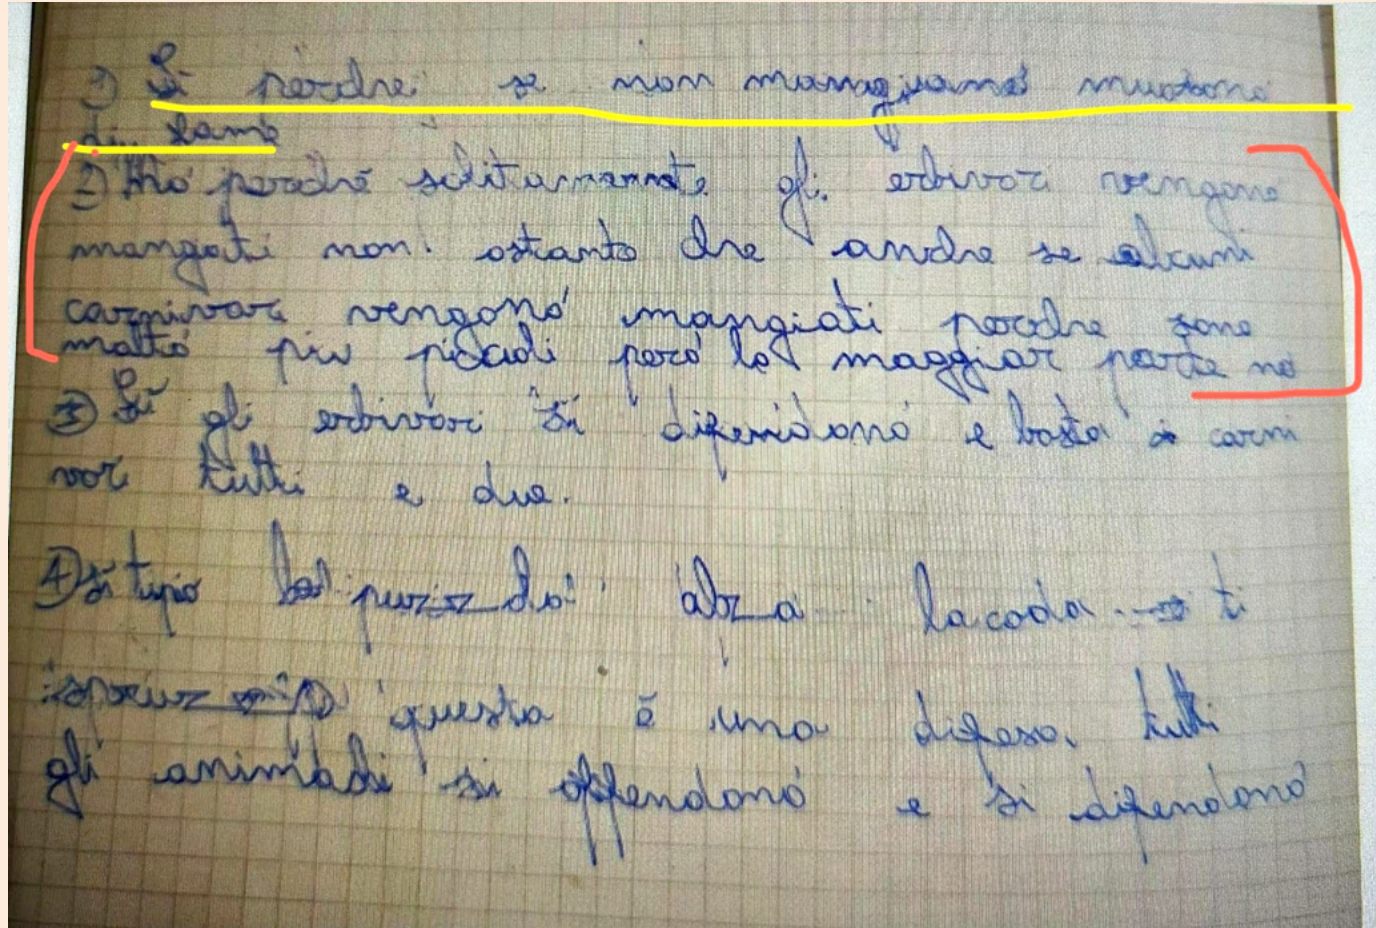 1) Si perche se non mangiano muoiono
di fame
2) No perchè solitamente gli erbivori vengono
mangati non ostanto che anche se alcuni
carnivori vengono mangiati perche sono
molto più picioli però la maggior parte no
3) Si gli erbivori si difendono e basta i carni
vori tutti e due.
4) Si tipo la puzzola alza la coda e ti
spruzza questa è una difesa, tutti
gli animali si offendono e si difendono